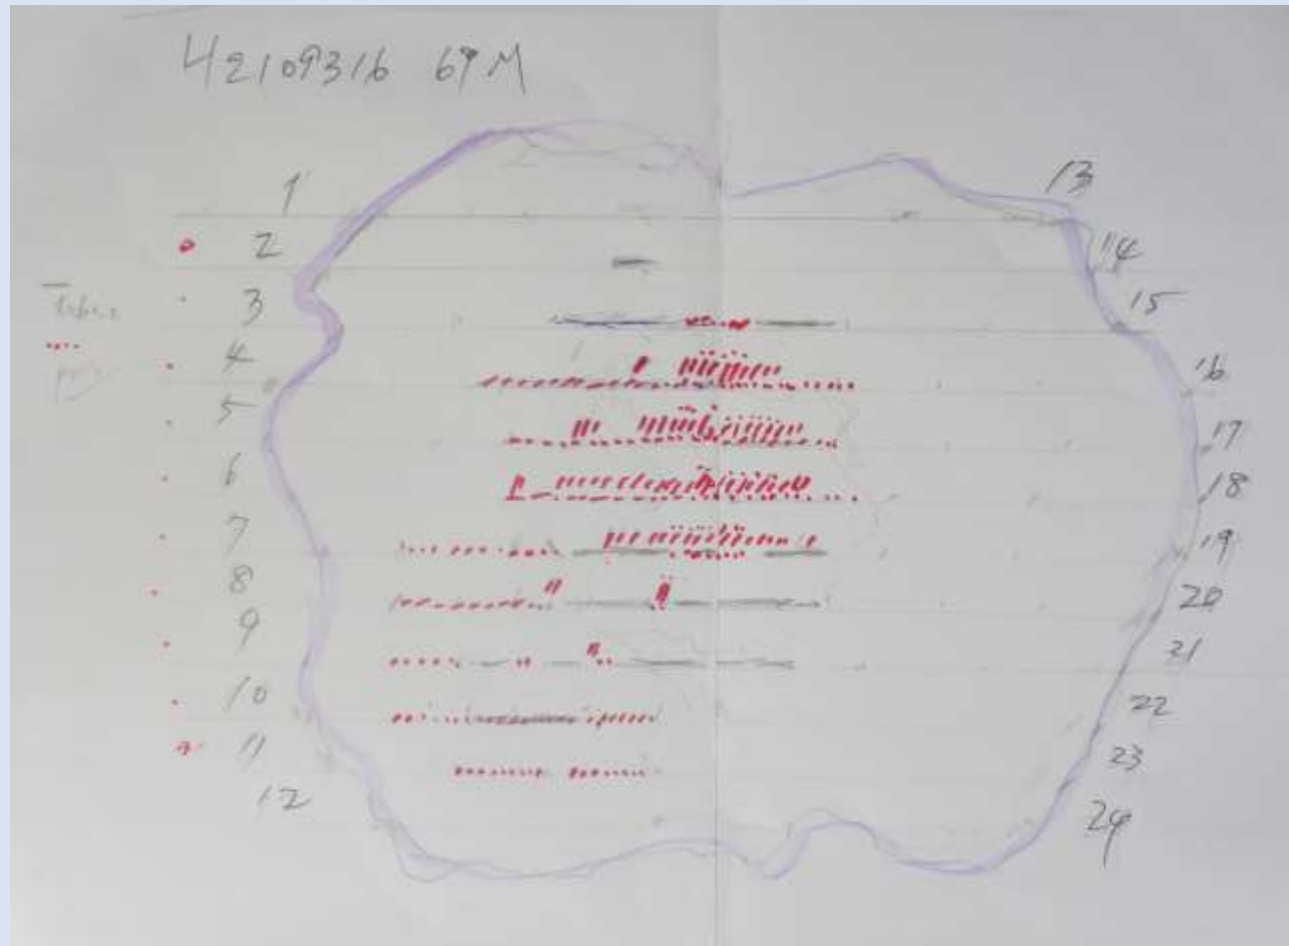 42109316 69M
1
2
3
4
5
6
7
8
9
10
11
12
13
14
15
16
17
18
19
20
21
22
23
24